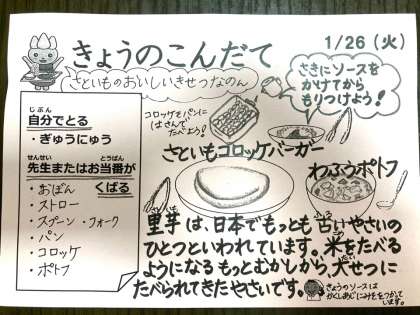 きょうのこんだて
1/26(火)
さといものおいしいきせつなのん
さきにソースを
かけてから
もりつけよう!
コロッケをパンに
はさんで
たべよう!
じぶん
自分でとる
・ぎゅうにゅう
せんせい とうばん
先生またはお当番が
くばる
・おぼん
・ストロー
・スプーン・フォーク
・パン
・コロッケ
・ポトフ
さといもコロッケバーガー
わふうポトフ
さといも にほん ふる
里芋は、日本でもっとも古いやさいの
ひとつといわれています。米をたべる
ようになるもっとむかしから、大せつに
たべられてきたやさいです。
きょうのソースは
かくしあじにみそをつかって
います。